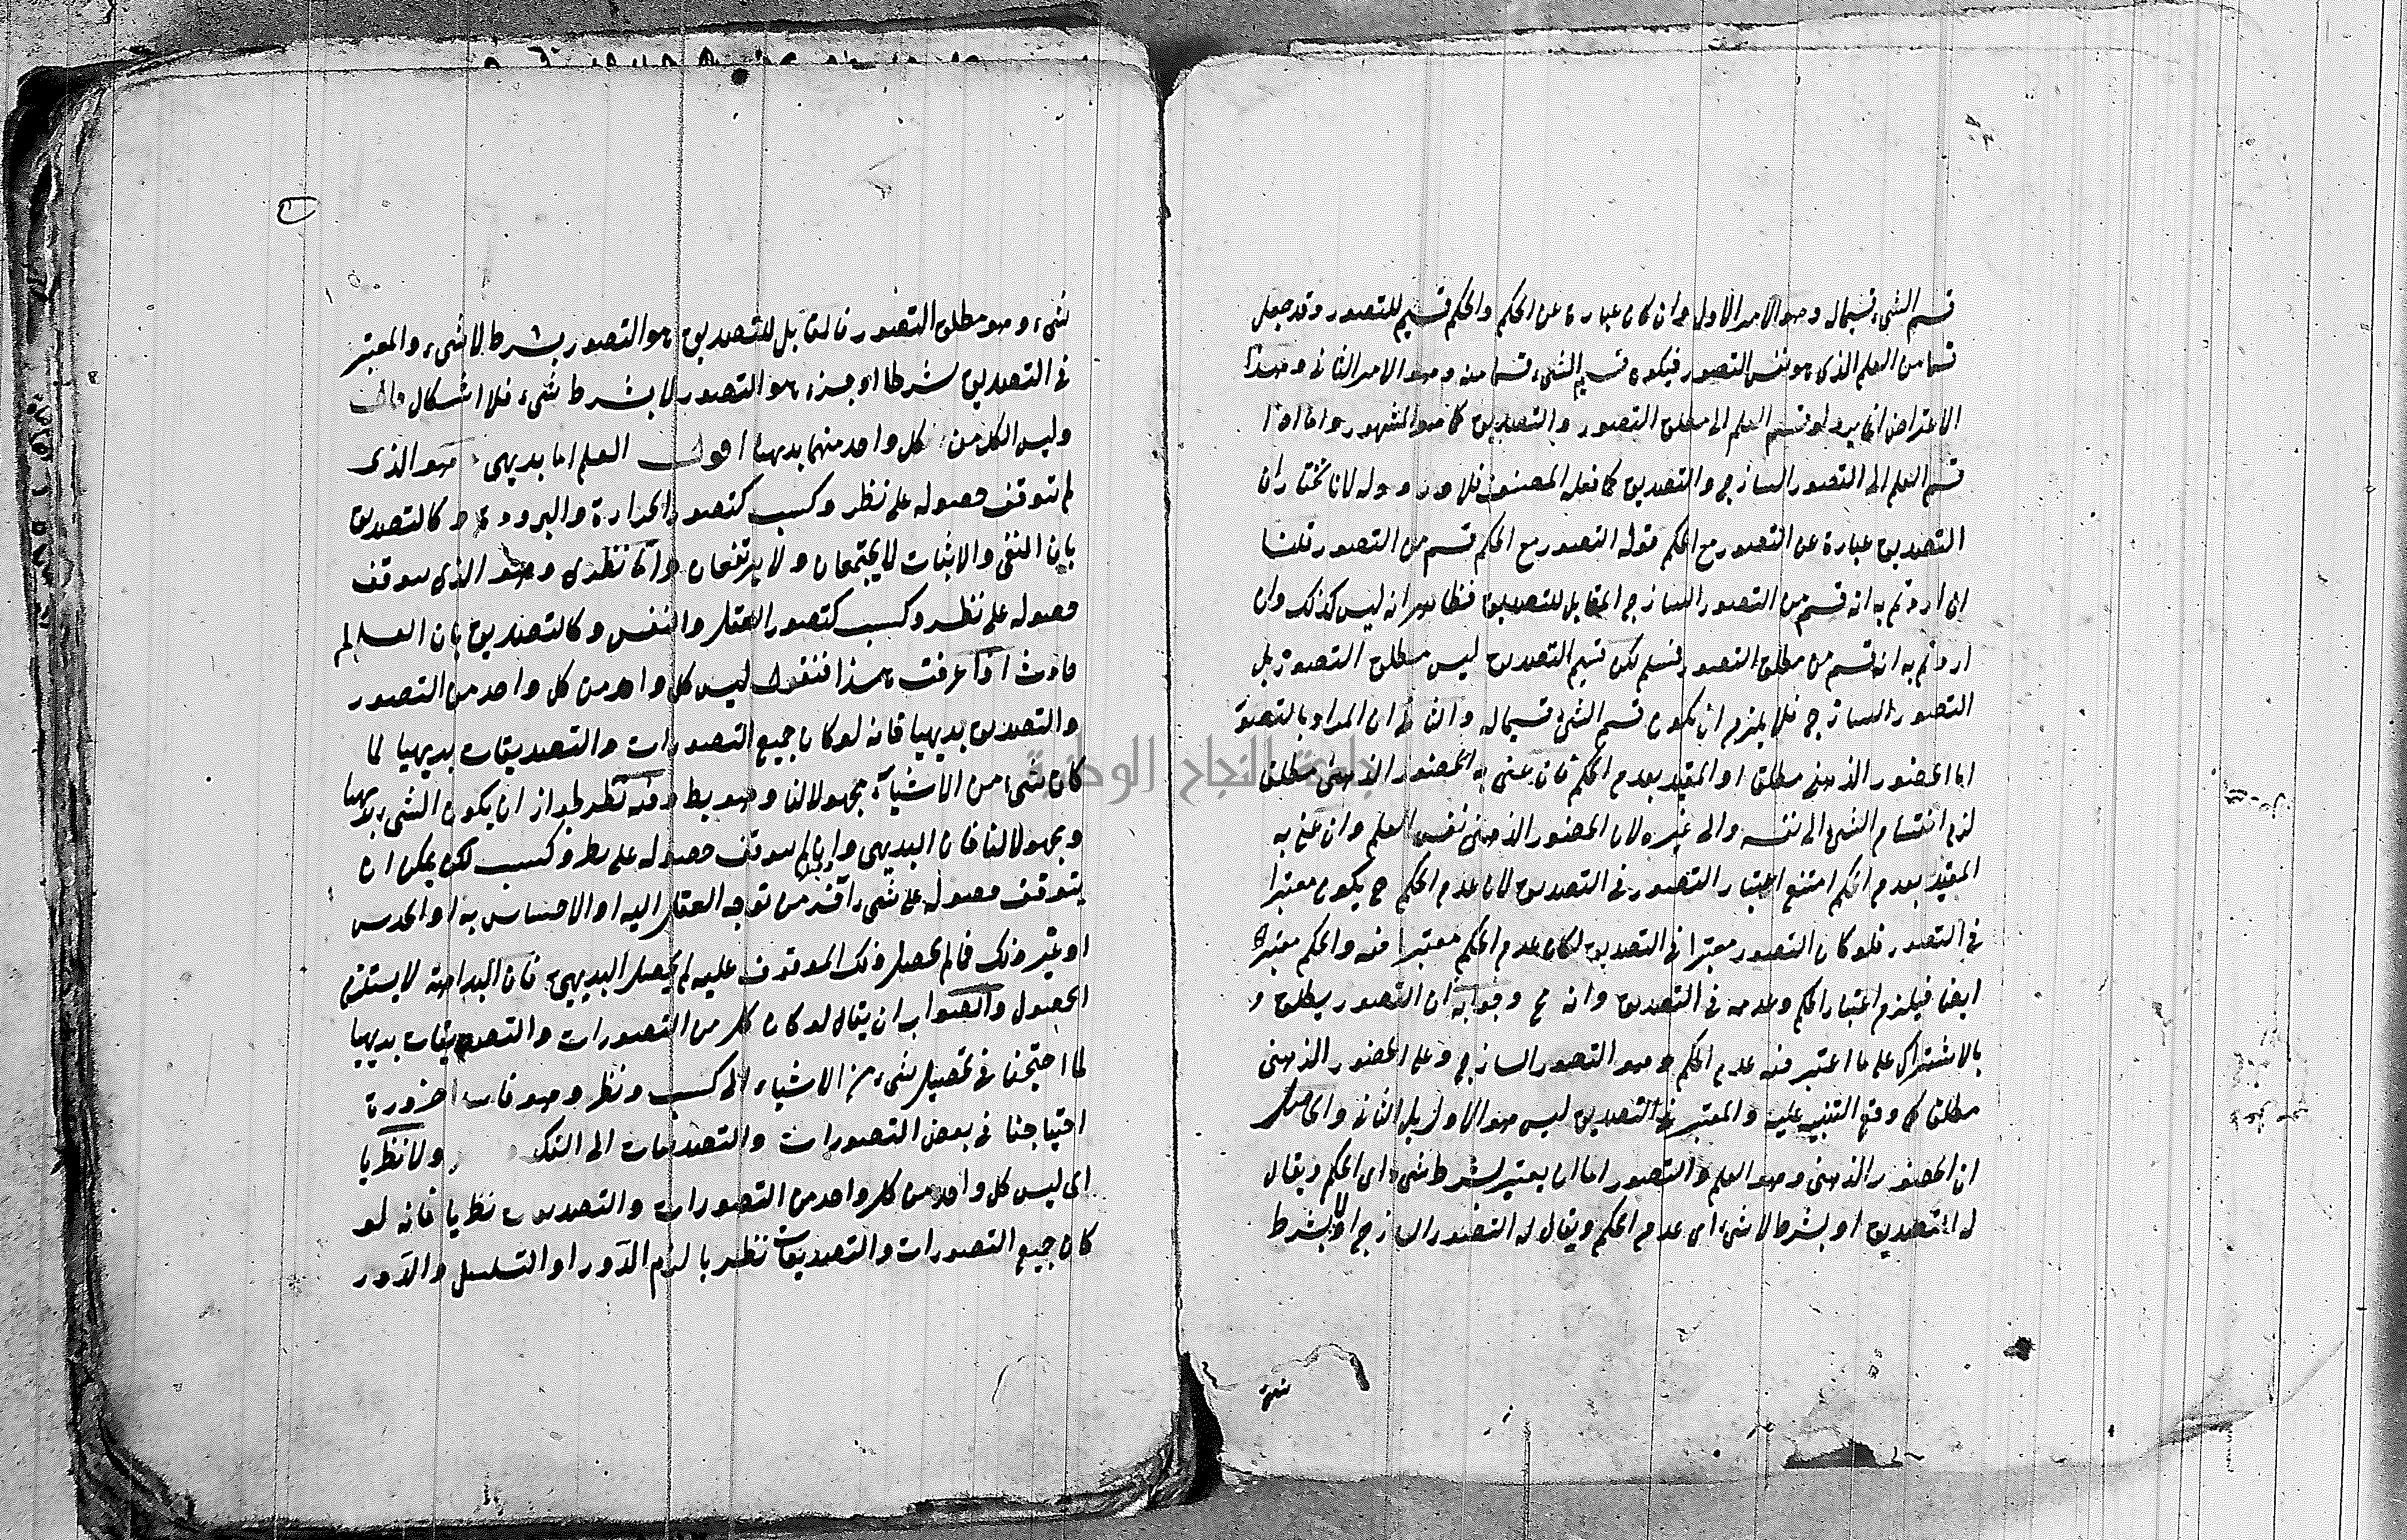 قسم الشيء قسيما له وهو الامر الاول وان كان عبارة عن الحكم والحكم قسيم للتصور وقد جعل
قسما من العلم الذي هو نفس التصور فيكون قسيم الشيء قسما منه وهو الامر الثاني وهذا
الاعتراض انما يرد لو قسم العلم الى مطلق التصور والتصديق كما هو المشهور واما اذا
قسم العلم الى التصور الساذج والتصديق كما فعله المصنف فلا ورود له لانا نختار ان
التصديق عبارة عن التصور مع الحكم قوله التصور مع الحكم قسم من التصور قلنا
ان اردتم به انه قسم من التصور الساذج المقابل للتصديق فظاهر انه ليس كذلك وان
اردتم به انه قسم من مطلق التصور فمسلم لكن قسيم التصديق ليس مطلق التصور بل
التصور الساذج فلا يلزم ان يكون قسم الشيء قسيما له والثاني ان المراد بالتصور
اما الحضور الذهني مطلقا او المقيد بعدم الحكم فان عنى به الحضور الذهني مطلقا
لزم انقسام الشيء الى نفسه والى غيره لان الحضور الذهني نفس العلم وان عنى به
المقيد بعدم الحكم امتنع اعتبار التصور في التصديق لان عدم الحكم ح يكون معتبرا
في التصور فلو كان التصور معتبرا في التصديق لكان عدم الحكم معتبرا فيه والحكم معتبر
ايضا فيلزم اعتبار الحكم وعدمه في التصديق وانه مح وجوابه ان التصور يطلق و
بالاشتراك على ما اعتبر فيه عدم الحكم وهو التصور الساذج وعلى الحضور الذهني
مطلقا كما وقع التنبيه عليه والمعتبر في التصديق ليس هو الاول بل الثاني والحاصل
ان الحضور الذهني وهو العلم والتصور اما ان يعتبر بشرط شيء اى الحكم ويقال
له التصديق او بشرط لا شيء اى عدم الحكم ويقال له التصور الساذج او لا بشرط
شيء
شيء وهو مطلق التصور فالمقابل للتصديق هو التصور بشرط لا شيء والمعتبر
في التصديق شرطا او جزء هو التصور لا بشرط شيء فلا اشكال قال
وليس الكل من كل واحد منهما بديهيا اقول العلم اما بديهي وهو الذى
لم يتوقف حصوله على نظر وكسب كتصور الحرارة والبرودة وكالتصديق
بان النفي والاثبات لا يجتمعان ولا يرتفعان واما نظرى وهو الذي يتوقف
حصوله على نظر وكسب كتصور العقل والنفس وكالتصديق بان العالم
حادث اذا عرفت هذا فنقول ليس كل واحد من كل واحد من التصور
والتصديق بديهيا فانه لو كان جميع التصورات والتصديقات بديهيا لما
كان شيء من الاشياء مجهولا لنا وهو بط وفيه نظر لجواز ان يكون الشيء بديهيا
ومجهولا لنا فان البديهي وان لم يتوقف حصوله على نظر وكسب لكن يمكن ان
يتوقف حصوله على شيء آخر من توجه العقل اليه او الاحساس به او الحدس
او غير ذلك فما لم يحصل ذلك الموقوف عليه لم يحصل البديهي فان البداهة لا يستلزم
الحصول والصواب ان يقال لو كان كل من التصورات والتصديقات بديهيا
لما احتجنا في تحصيل شيء من الاشياء الى كسب ونظر وهو فاسد ضرورة
احتياجنا في بعض التصورات والتصديقات الى الفكر ولا نظريا
اى ليس كل واحد من كل واحد من التصورات والتصديقات نظريا فانه لو
كان جميع التصورات والتصديقات نظريا لزم الدور او التسلسل والدور